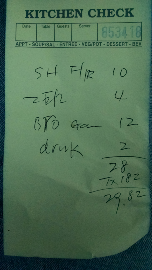 KITCHEN CHECK
Date Table Guests Server 853418
APPT-SOUP/SAL-ENTREE-VEG/POT-DESSERT-BEV
SH F/R 10
4.
BBQ 12
drink 2
28
Tx 1.82
29.82